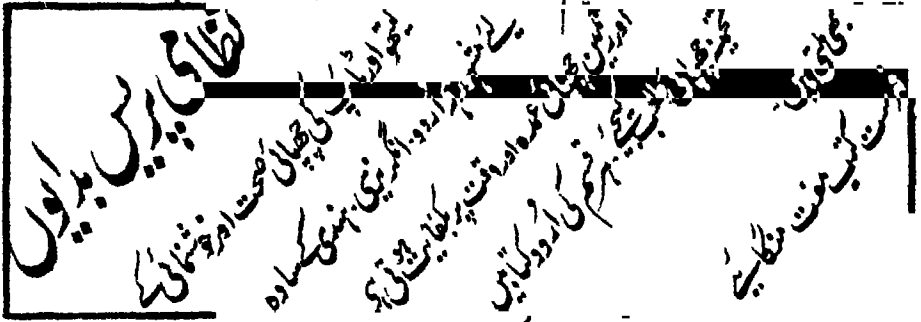 نظامی پریس بدایوں
لیتھو اور ٹائپ کی چھپائی صحت اور خوشنمائی کے
لئے اردو۔ انگریزی۔ ہندی کے سادہ
اور رنگین چھپائی عمدہ اور وقت پر بکفایت ہوتی ہے
چھپائی ہر قسم کی اردو کتابیں
بھی ملتی ہیں۔
فہرست کتب مفت منگائیے